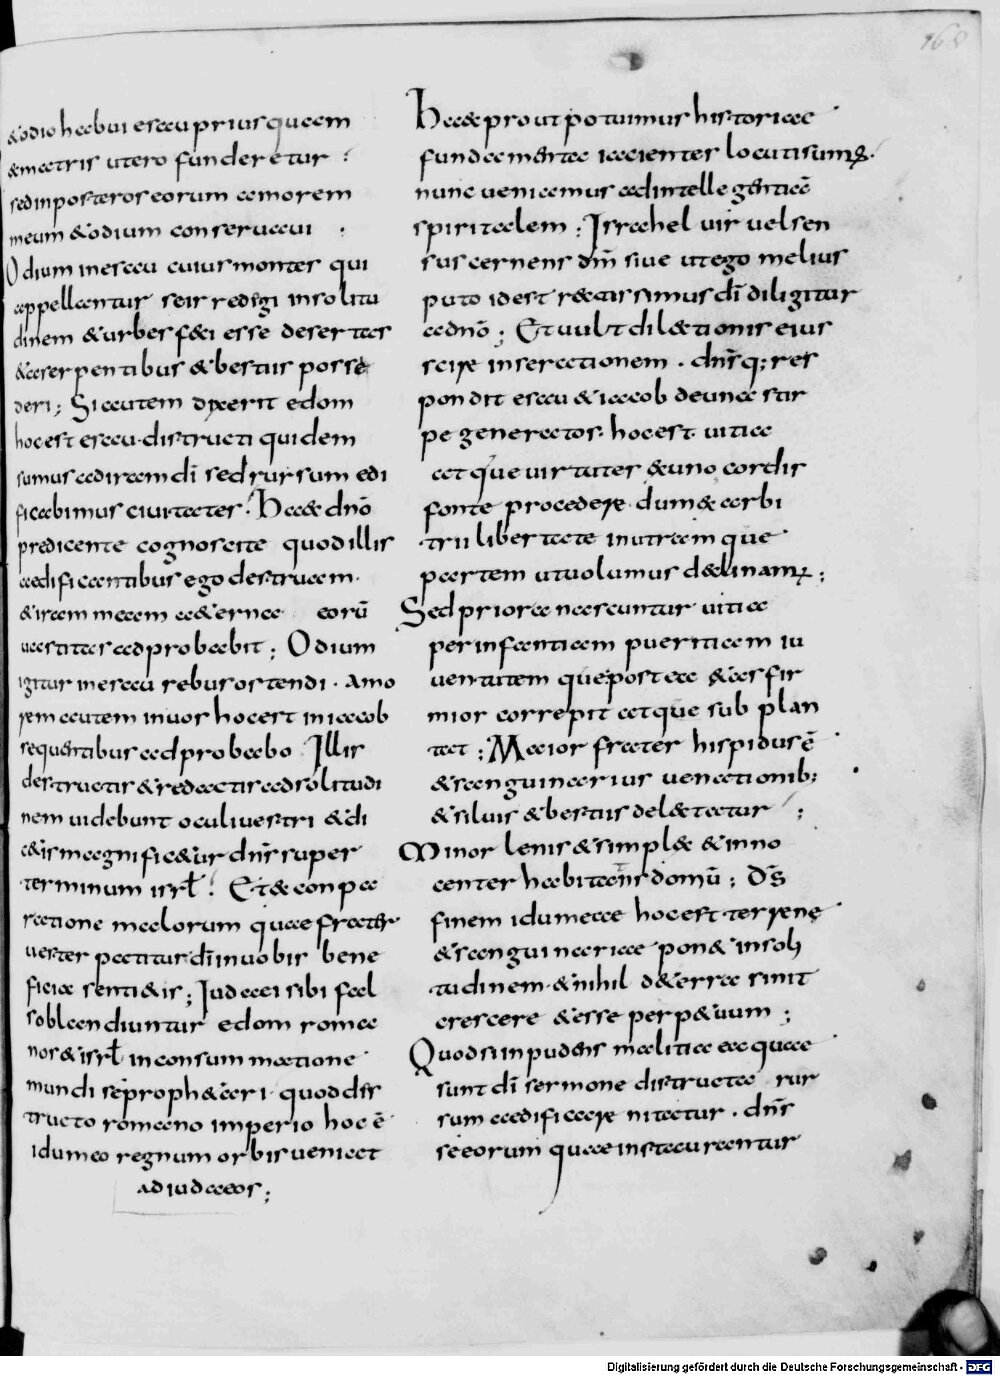 168
&odio habui esau priusquam
&matris utero funderetur :
sed in posteros eorum amorem
meum &odium conseruaui :
Odium in esau cuius montes qui
appellantur seir redegi in solitu
dinem & urbes f&ei esse desertas
& a serpentibus & bestiis posse
deri ; Si autem dixerit edom
hoc est esau · distructi quidem
sumus ad iram dī sed rursum edi
ficabimus ciuitates . Haec dnō
predicente cognoscite quod illis
aedificantibus ego destruam ·
& iram meam a&erna eorū
uastitas adprobabit ; Odium
igitur in esau rebus ostendi · amo
rem autem in uos hoc est in iacob
sequentibus adprobabo Illis
destructis & redactis ad solitudi
nem uidebunt oculi uestri & di
c&is magnific&ur dns̄ super
terminum isrł . Et &conpa
ratione malorum quae frater
uester patitur dī in uobis bene
ficia senti&is ; Iudaei sibi fal
so blandiuntur edom roma
nos & isrł in consummatione
mundi se proph&ari · quod dis
tructo romano imperio hoc ē
idumeo regnum orbis ueniat
ad iudaeos ;
Haec prout potuimus historiae
fundamenta iacientes locuti sum⁊ .
nunc ueniamus ad intellegentiā
spiritalem ; Israhel uir uel sen
sus cernens dm̄ siue ut ego melius
puto id est rectissimus dī diligitur
a dnō ; Et uult dil&ionis eius
scire inse rationem . dns̄q; res
pondit esau & iacob de una stir
pe generatos · hoc est · uitia
atque uirtutes & uno cordis
fonte procedere dum & arbi
trii libertate in utramque
partem ut uolumus declinamꝰ ;
Sed priora nascuntur uitia
per infantiam pueritiam iu
uentutem que postea &as fir
mior corripit atque subplan
tat ; Maior frater hispidus ē
& sanguinarius uenationib;
& siluis & bestiis del&tatur ;
Minor lenis & simplex & inno
center habitans domū ; Dn̄s
finem idumeae hoc est terrenę
& sanguinariae pon& in soli
tudinem · & nihil de terra sinit
crescere & esse perp&uum ;
Quod si inpudens malitia ea quae
sunt dī sermone distructa rur
sum aedificare nitatur . dns̄
se eorum quae instaurantur
Digitalisierung gefördert durch die Deutsche Forschungsgemeinschaft - DFG